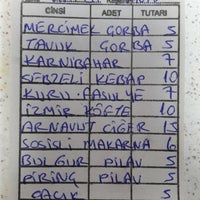 CİNSİ ADET TUTARI
MERCİMEK ÇORBA 5
TAVUK ÇORBA 5
KARNIBAHAR 7
SEBZELİ KEBAP 10
KURU FASULYE 7
İZMİR KÖFTE 10
ARNAVUT CİĞER 15
SOSİSLİ MAKARNA 6
BULGUR PİLAV 5
PİRİNÇ PİLAV 5
CACIK 5